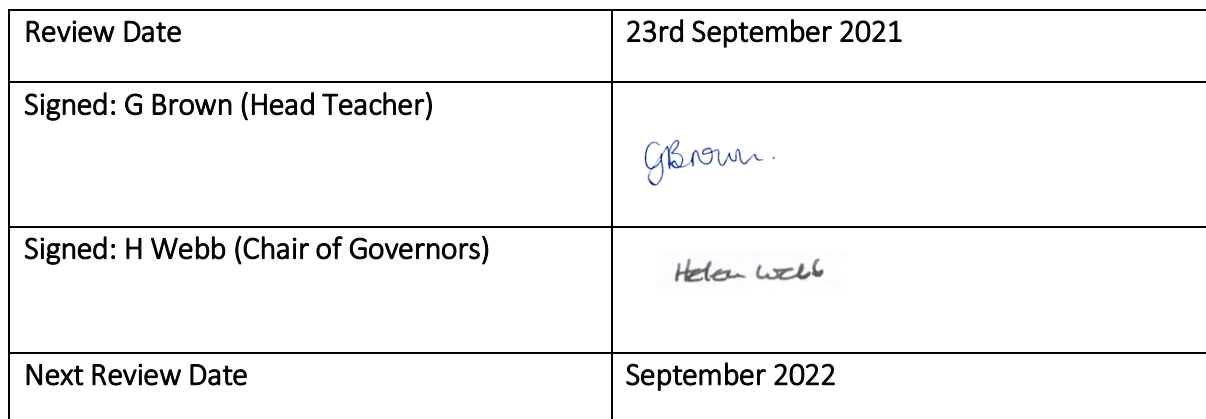 Review Date
23rd September 2021
Signed: G Brown (Head Teacher)
GBrown.
Signed: H Webb (Chair of Governors)
Helen Webb
Next Review Date
September 2022